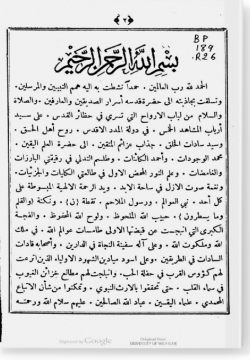 ﴿٢﴾
BP
189
.R26
بسم الله الرحمن الرحيم
الحمد لله رب العالمين. حمداً نشطت به اليه همم النبيين والمرسلين.
وتسلقت بجاذبته الى حضرة قدسه أسرار الصديقين والعارفين. والصلاة
والسلام من لباب الارواح التي تسري في حظائر القدس. على سيد
أرباب المشاهد الخمس. في دولة المدد الاقدس. روح أهل الحق.
وسيد سادات الخلق. جذاب عزائم المتقين. الى حضرة العلم اليقين.
محمد الوجودات. وأحمد الكائنات. وطلسم التدلي في رقرقتي البارزات
والغامضات. وعلم النور المحض الاول في طالعتي الكليات والجزئيات.
ونغمة صوت الازل في ساحة الابد. ويد الرحمة الالهية المبسوطة على
كل أحد. نبي العوالم. ورسول الملاحم. نقطة {ن} ونكتة {والقلم
وما يسطرون}. حبيب الله الملحوظ. ولوح الله المحفوظ. والفيجة
الكبرى التي انبجست عن قبضتها الاولى طامسات عوالم الله. في ملك
الله وملكوت الله. وعلى آله سفينة النجاة في الدارين. وأصحابه قادات
السادات في الطرفين. وعلى اسود ميادين الشهود الاولياء الذين اترعت
لهم كؤوس القرب في حفلة الحب. وانبلجت لهم مطالع خزائن الغيوب
في سماء القلب. حتى تحققوا بالارث النبوي. وتمكنوا من شأن الاتباع
المحمدي. علماء اليقين. عباد الله الصالحين. عليهم سلام الله ورحمته
Google